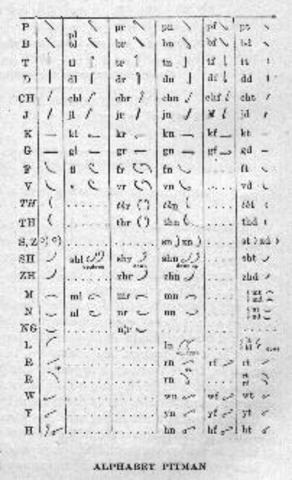 P pl pr pn pf pt
B bl br bn bf bt
T tl tr tn tf tt
D dl dr dn df dd
CH chl chr chn chf cht
J jl jr jn jf jd
K kl kr kn kf kt
G gl gr gn gf gd
F fl fr fn ft
V vr vn vd
TH thr thn tht
TH thr thn thd
S, Z sn zn st zd
SH shl shr shn sht
ZH zhr zhn zhd
M ml mr mn
N nl nr nn
NG ngr
L ln
R rn rf rt
R rn rt
W wn wf wt
Y yn yf yt
H hn hf ht
ALPHABET PITMAN